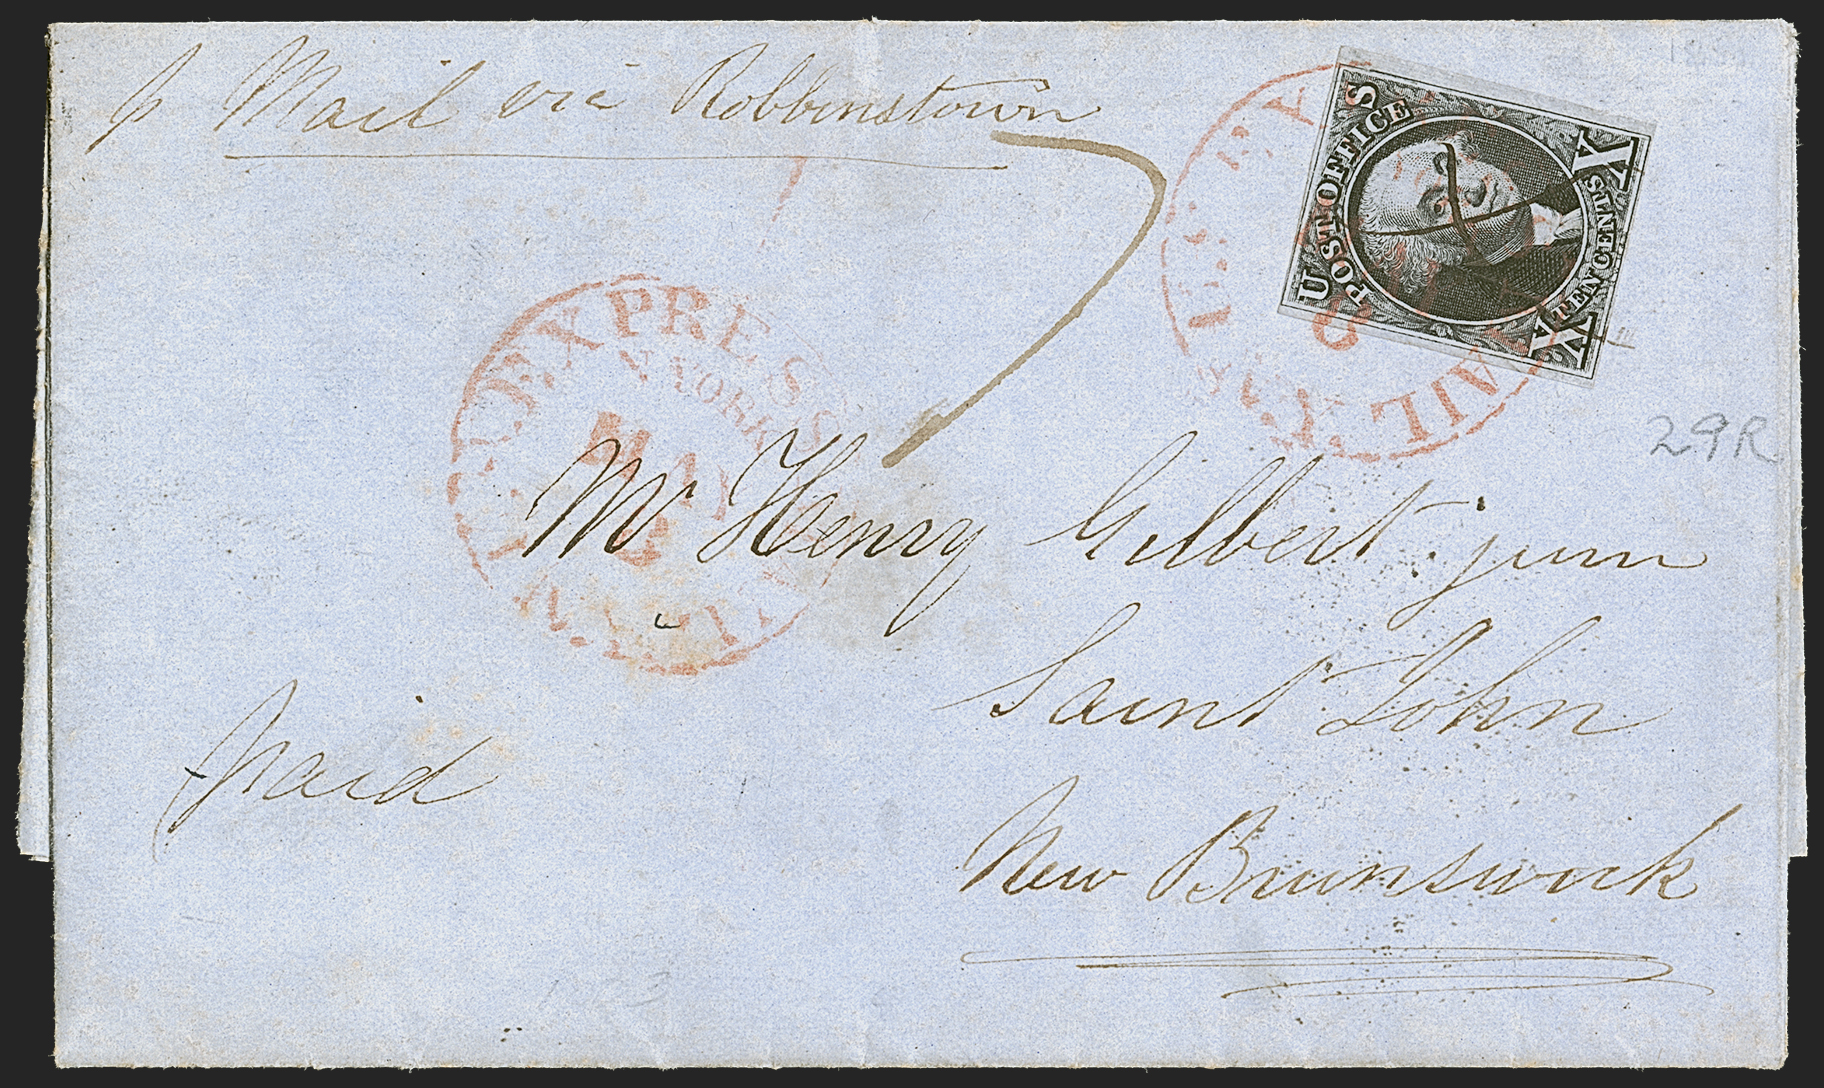 p Mail via Robbinstown
U S
POST OFFICE
X X
TEN CENTS
EXPRESS MAIL
N. YORK
MAY
8
N.Y.
U.S. EXPRESS MAIL
N.Y.
8
7
29R
Mr Henry Gilbert junr
Saint John
New Brunswick
paid